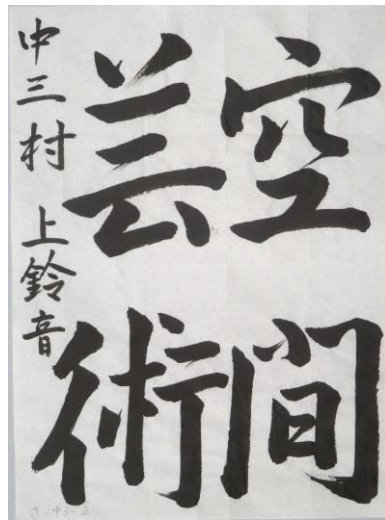 空間
芸術
中三 村上鈴音